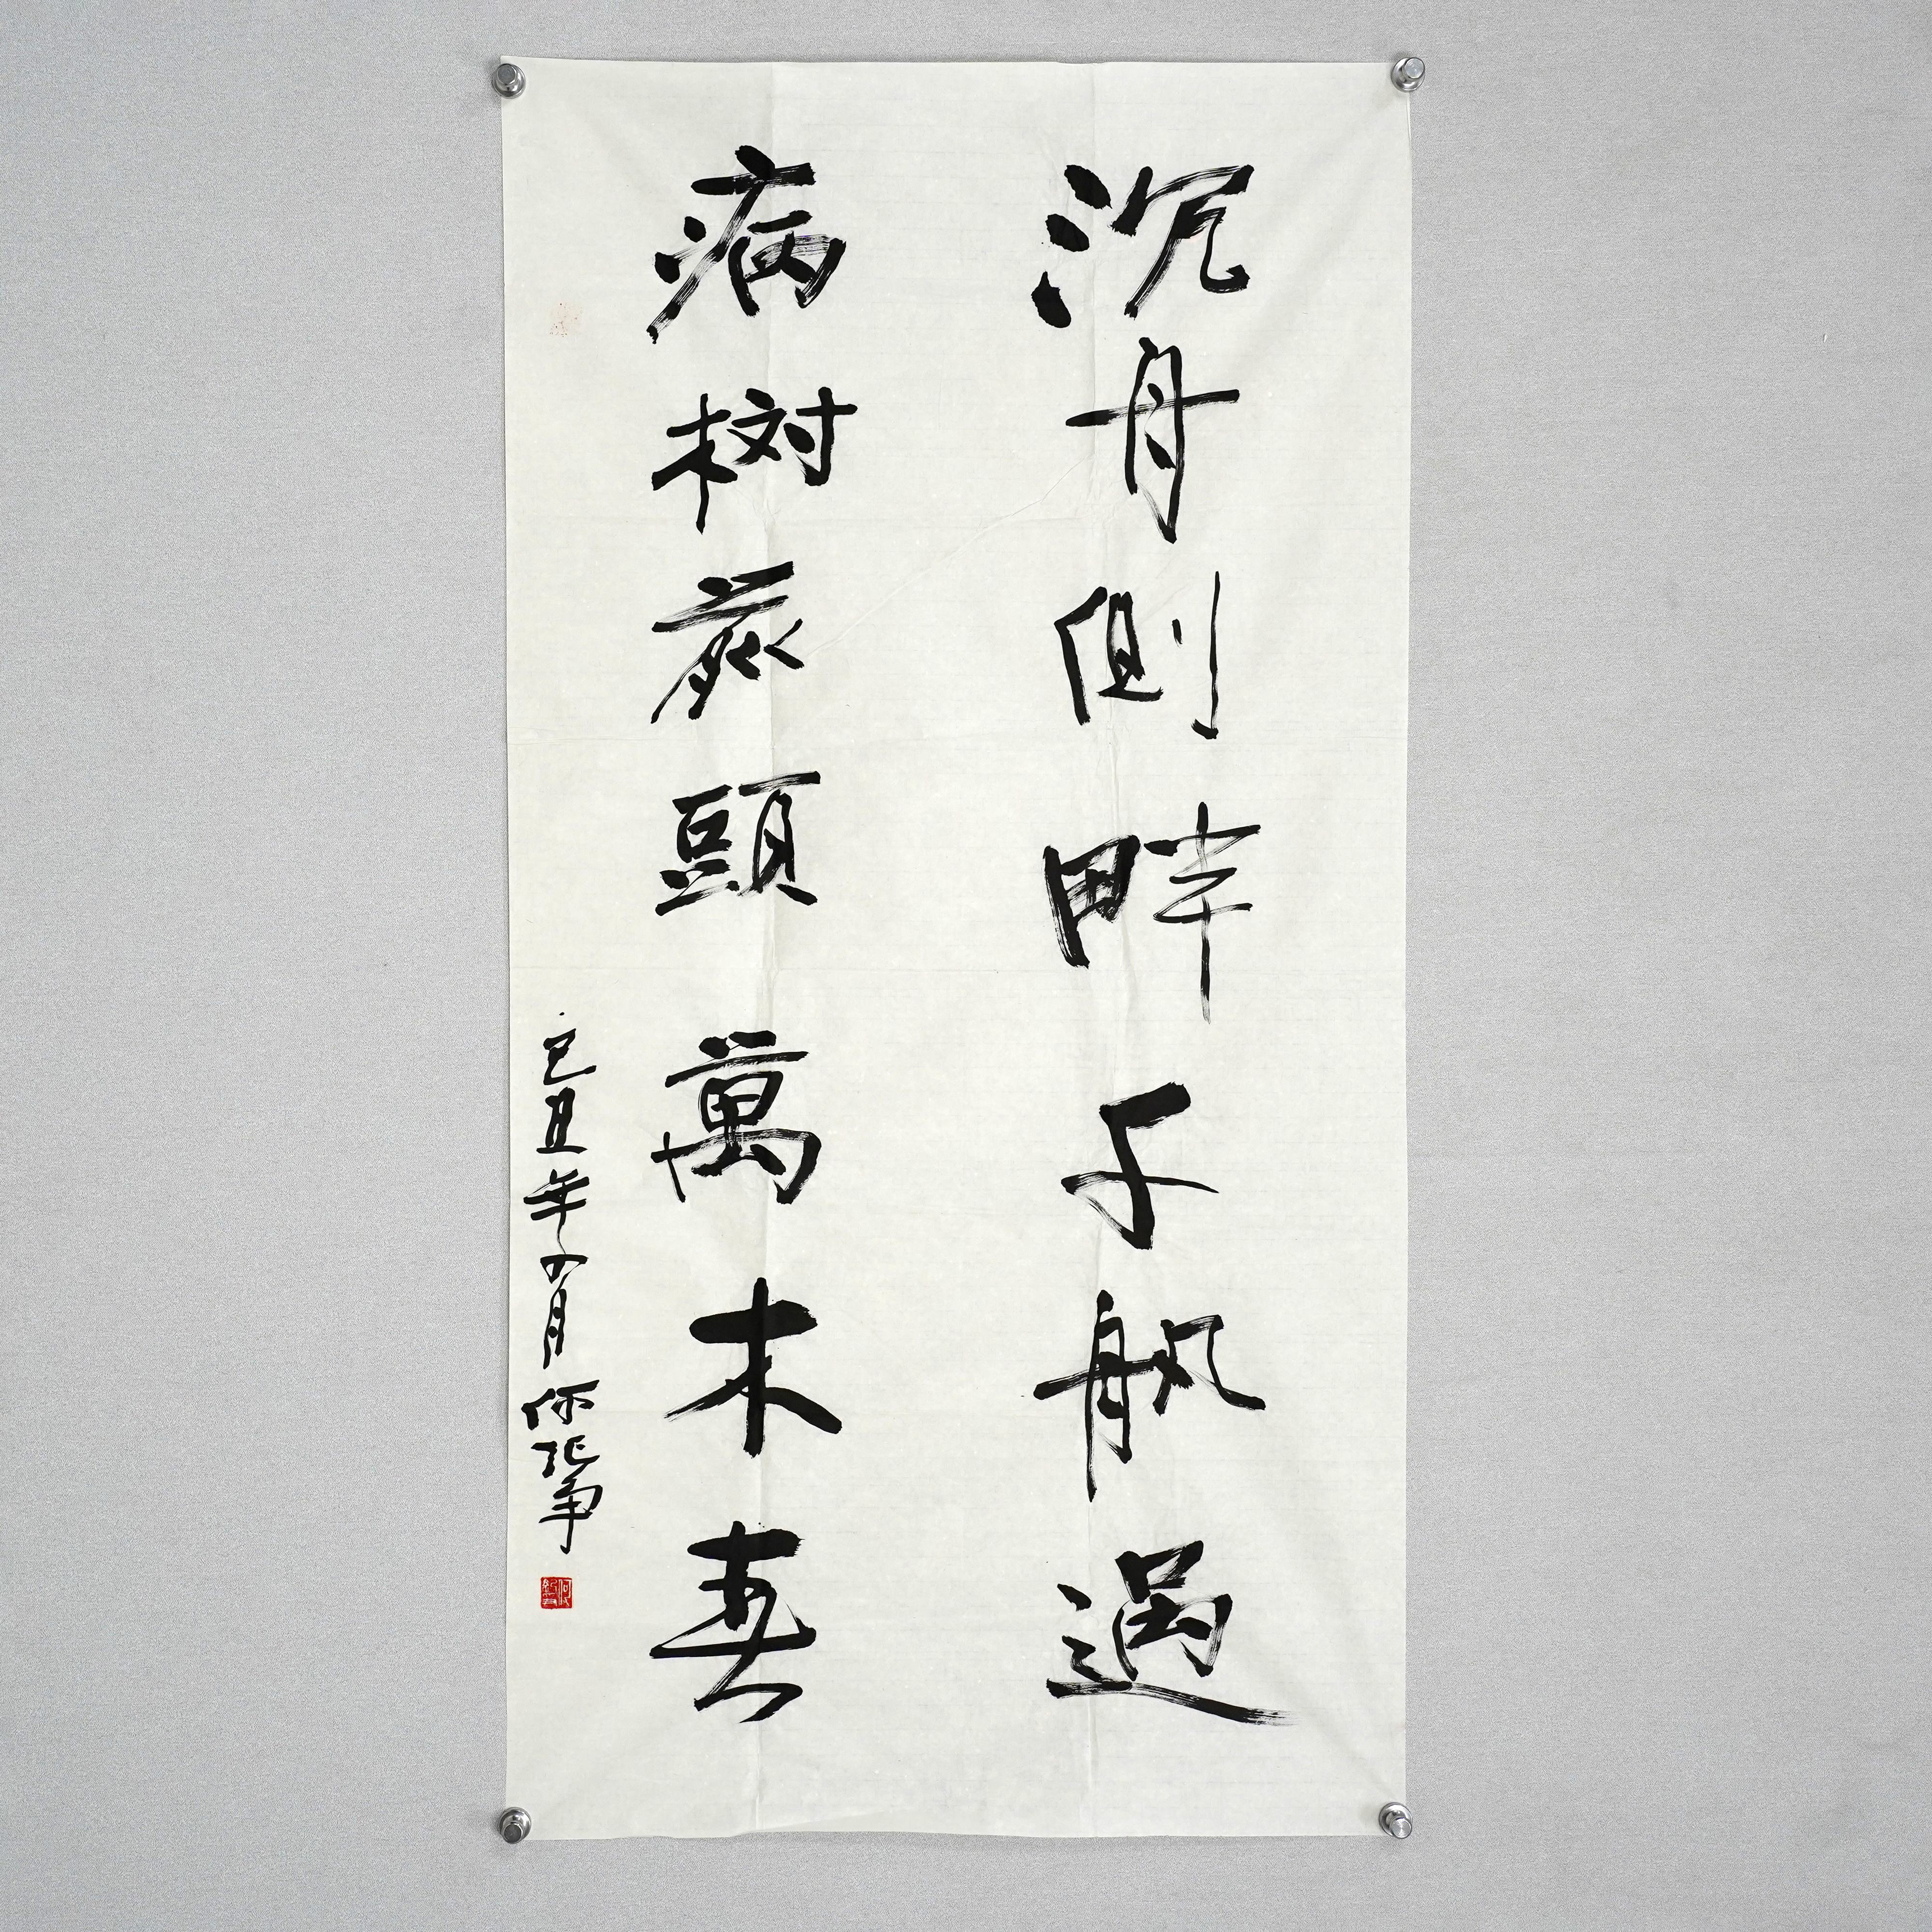 沉舟側畔千帆過
病树前頭萬木春
己丑年四月何